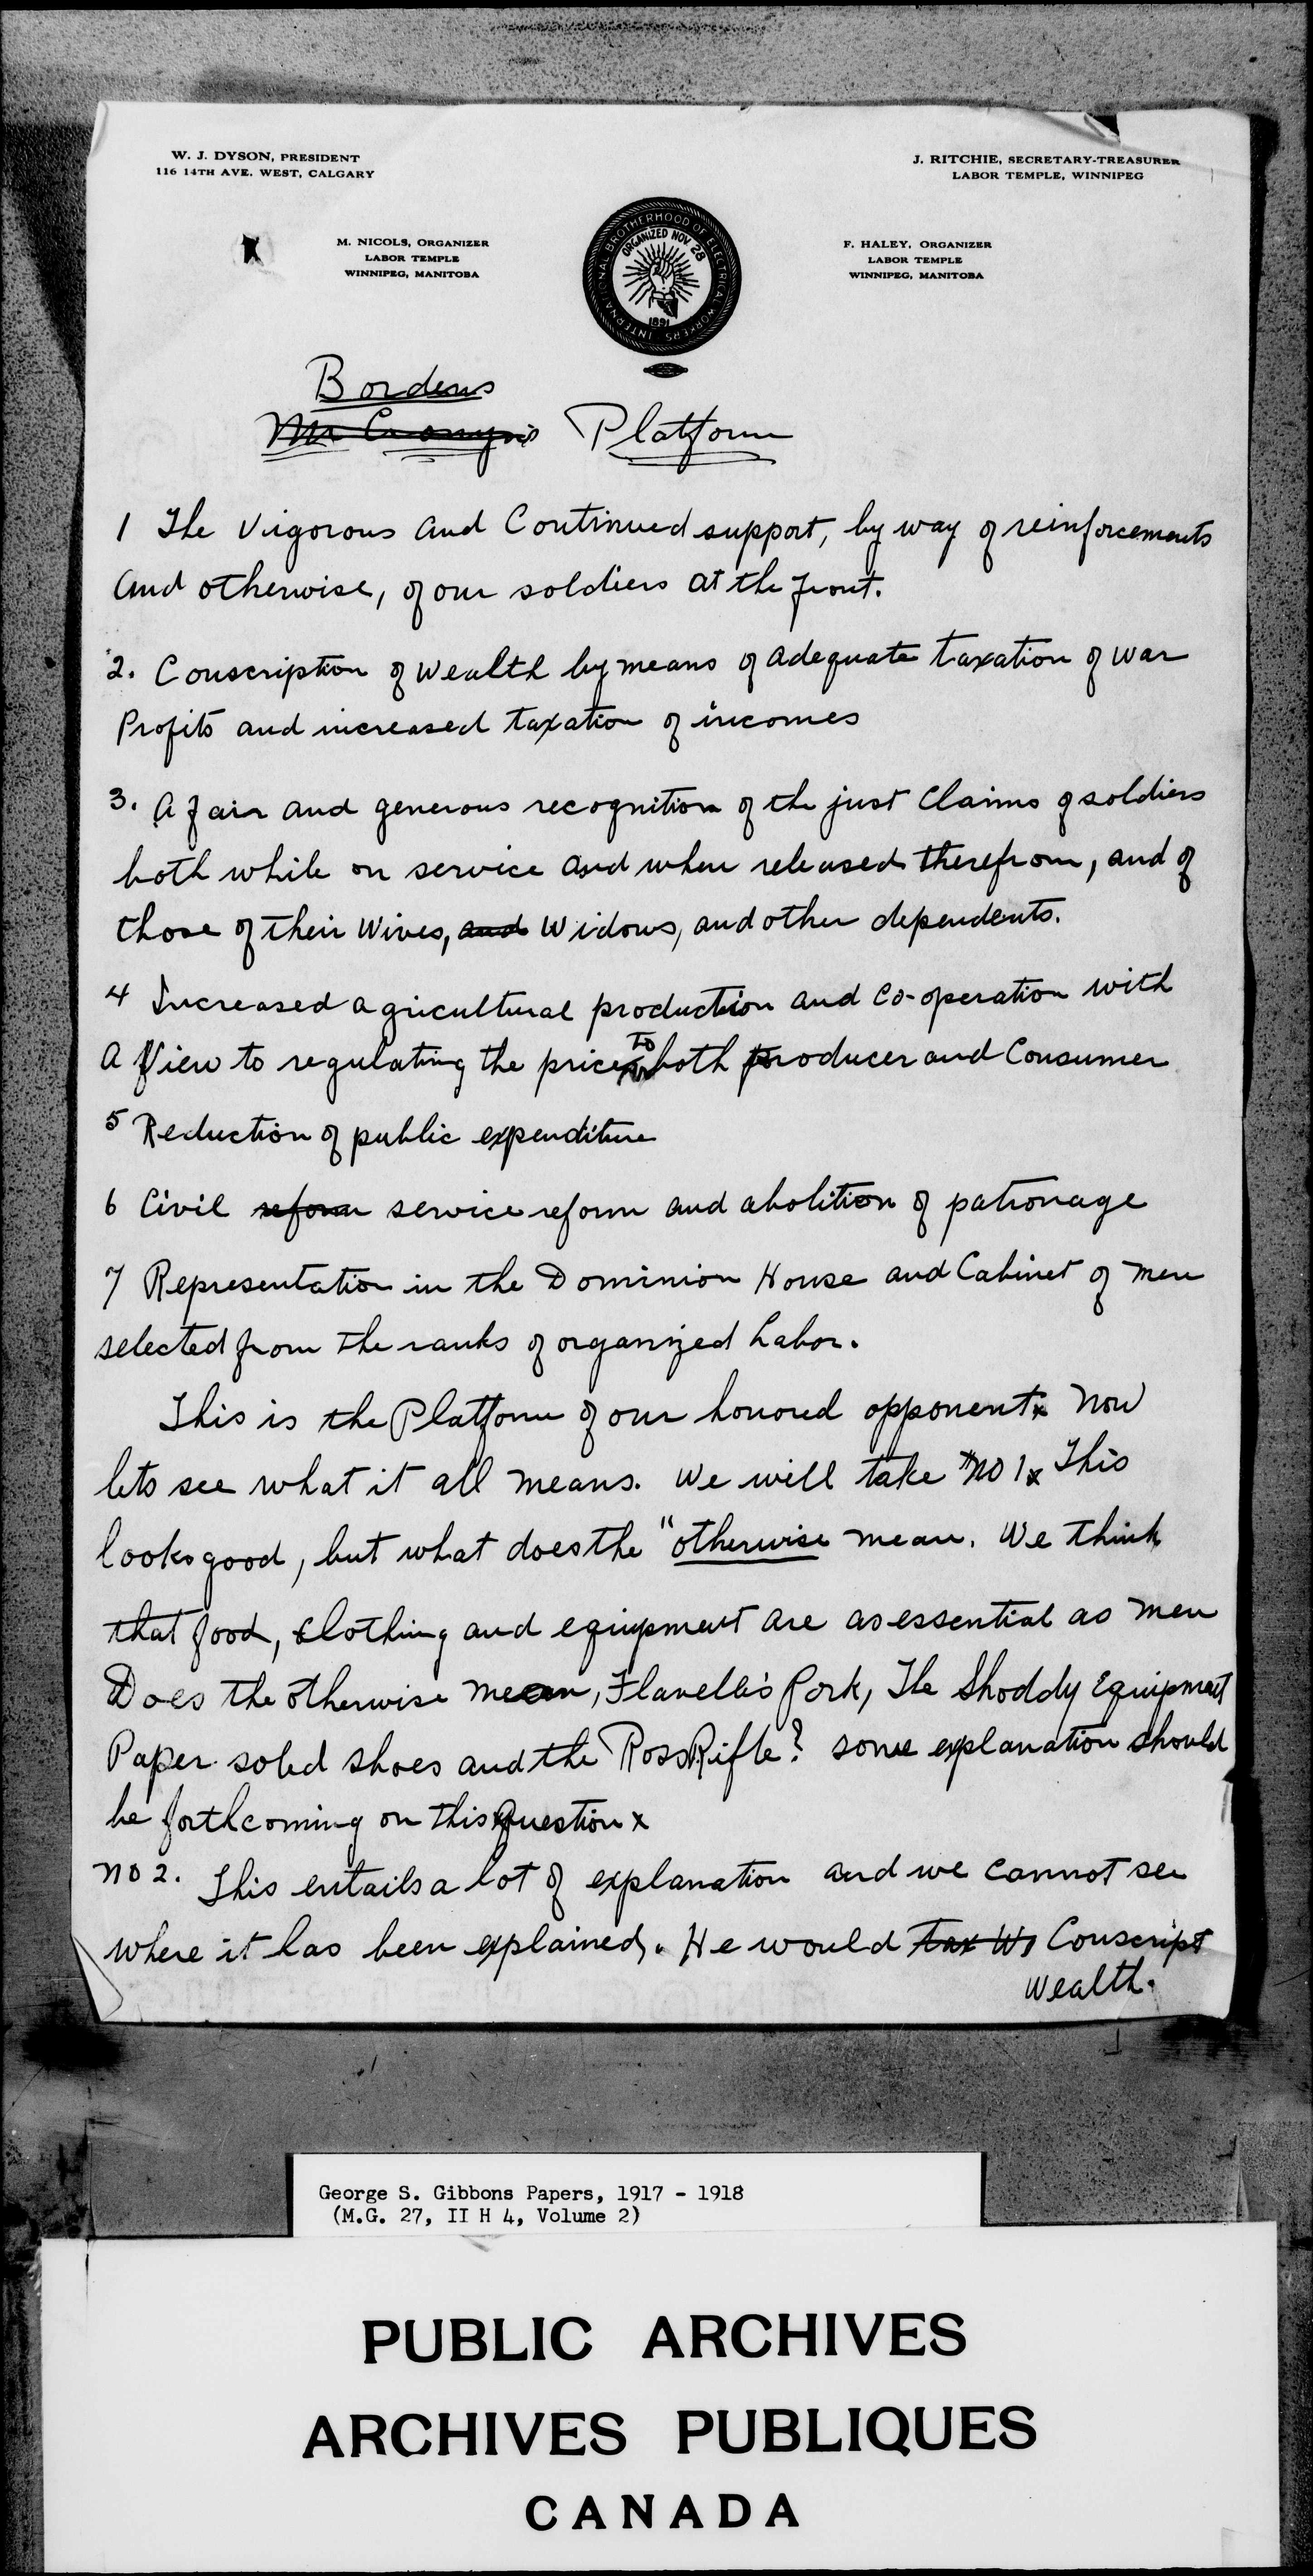 W. J. DYSON, PRESIDENT
116 14TH AVE. WEST, CALGARY
J. RITCHIE, SECRETARY-TREASURER
LABOR TEMPLE, WINNIPEG
M. NICOLS, ORGANIZER
LABOR TEMPLE
WINNIPEG, MANITOBA
F. HALEY, ORGANIZER
LABOR TEMPLE
WINNIPEG, MANITOBA
INTERNATIONAL BROTHERHOOD OF ELECTRICAL WORKERS
ORGANIZED NOV. 28
1891
Bordens
Mr Cronyn's Platform
1 The Vigorous and Continued support, by way of reinforcements
and otherwise, of our soldiers at the front.
2. Conscription of Wealth by means of adequate taxation of war
Profits and increased taxation of incomes
3. A fair and generous recognition of the just Claims of soldiers
both while on service and when released therefrom, and of
those of their Wives, and Widows, and other dependents.
4 Increased agricultural production and Co-operation with
to
a View to regulating the prices both producer and Consumer
5 Reduction of public expenditure
6 Civil reform service reform and abolition of patronage
7 Representation in the Dominion House and Cabinet of men
selected from the ranks of organized Labor.
This is the Platform of our honored opponent x now
lets see what it all means. We will take #no 1 x This
looks good, but what does the "otherwise mean. We think
that food, clothing and equipment are as essential as men
Does the otherwise mean, Flavelle's Pork, The Shoddy Equipment
Paper soled shoes and the Ross Rifle? some explanation should
be forthcoming on this Question x
no 2. This entails a lot of explanation and we cannot see
where it has been explained. He would tax W Conscript
Wealth.
George S. Gibbons Papers, 1917 - 1918
(M.G. 27, II H 4, Volume 2)
PUBLIC ARCHIVES
ARCHIVES PUBLIQUES
CANADA